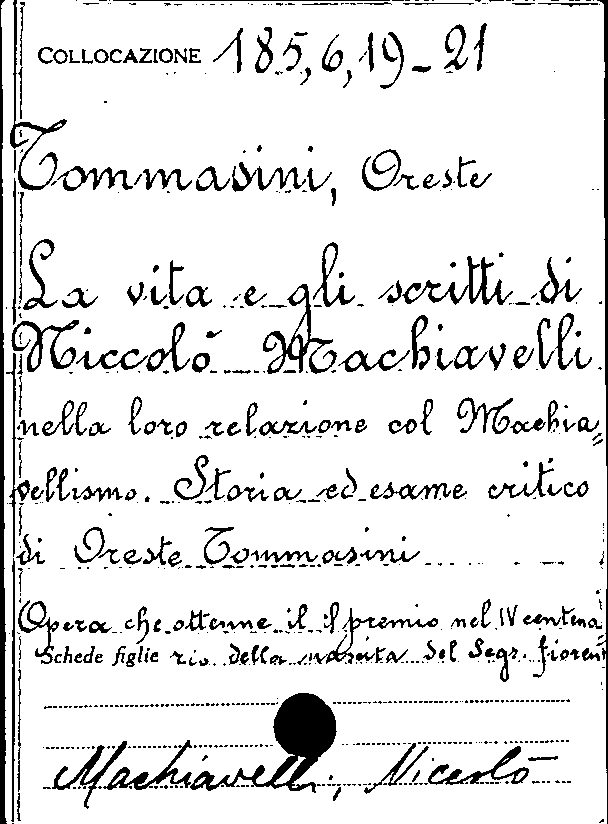 COLLOCAZIONE 185,6,19-21
Tommasini, Oreste
La vita e gli scritti di
Niccolò Machiavelli
nella loro relazione col Machia=
vellismo. Storia ed esame critico
di Oreste Tommasini
Opera che ottenne il premio nel IV centena=
Schede figlie rio della nascita del Segr. fiorent
Machiavelli, Niccolò